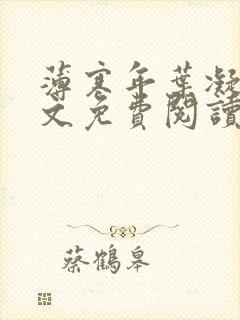 薄寒年葉凝
文免費閱讀
蔡鶴皋